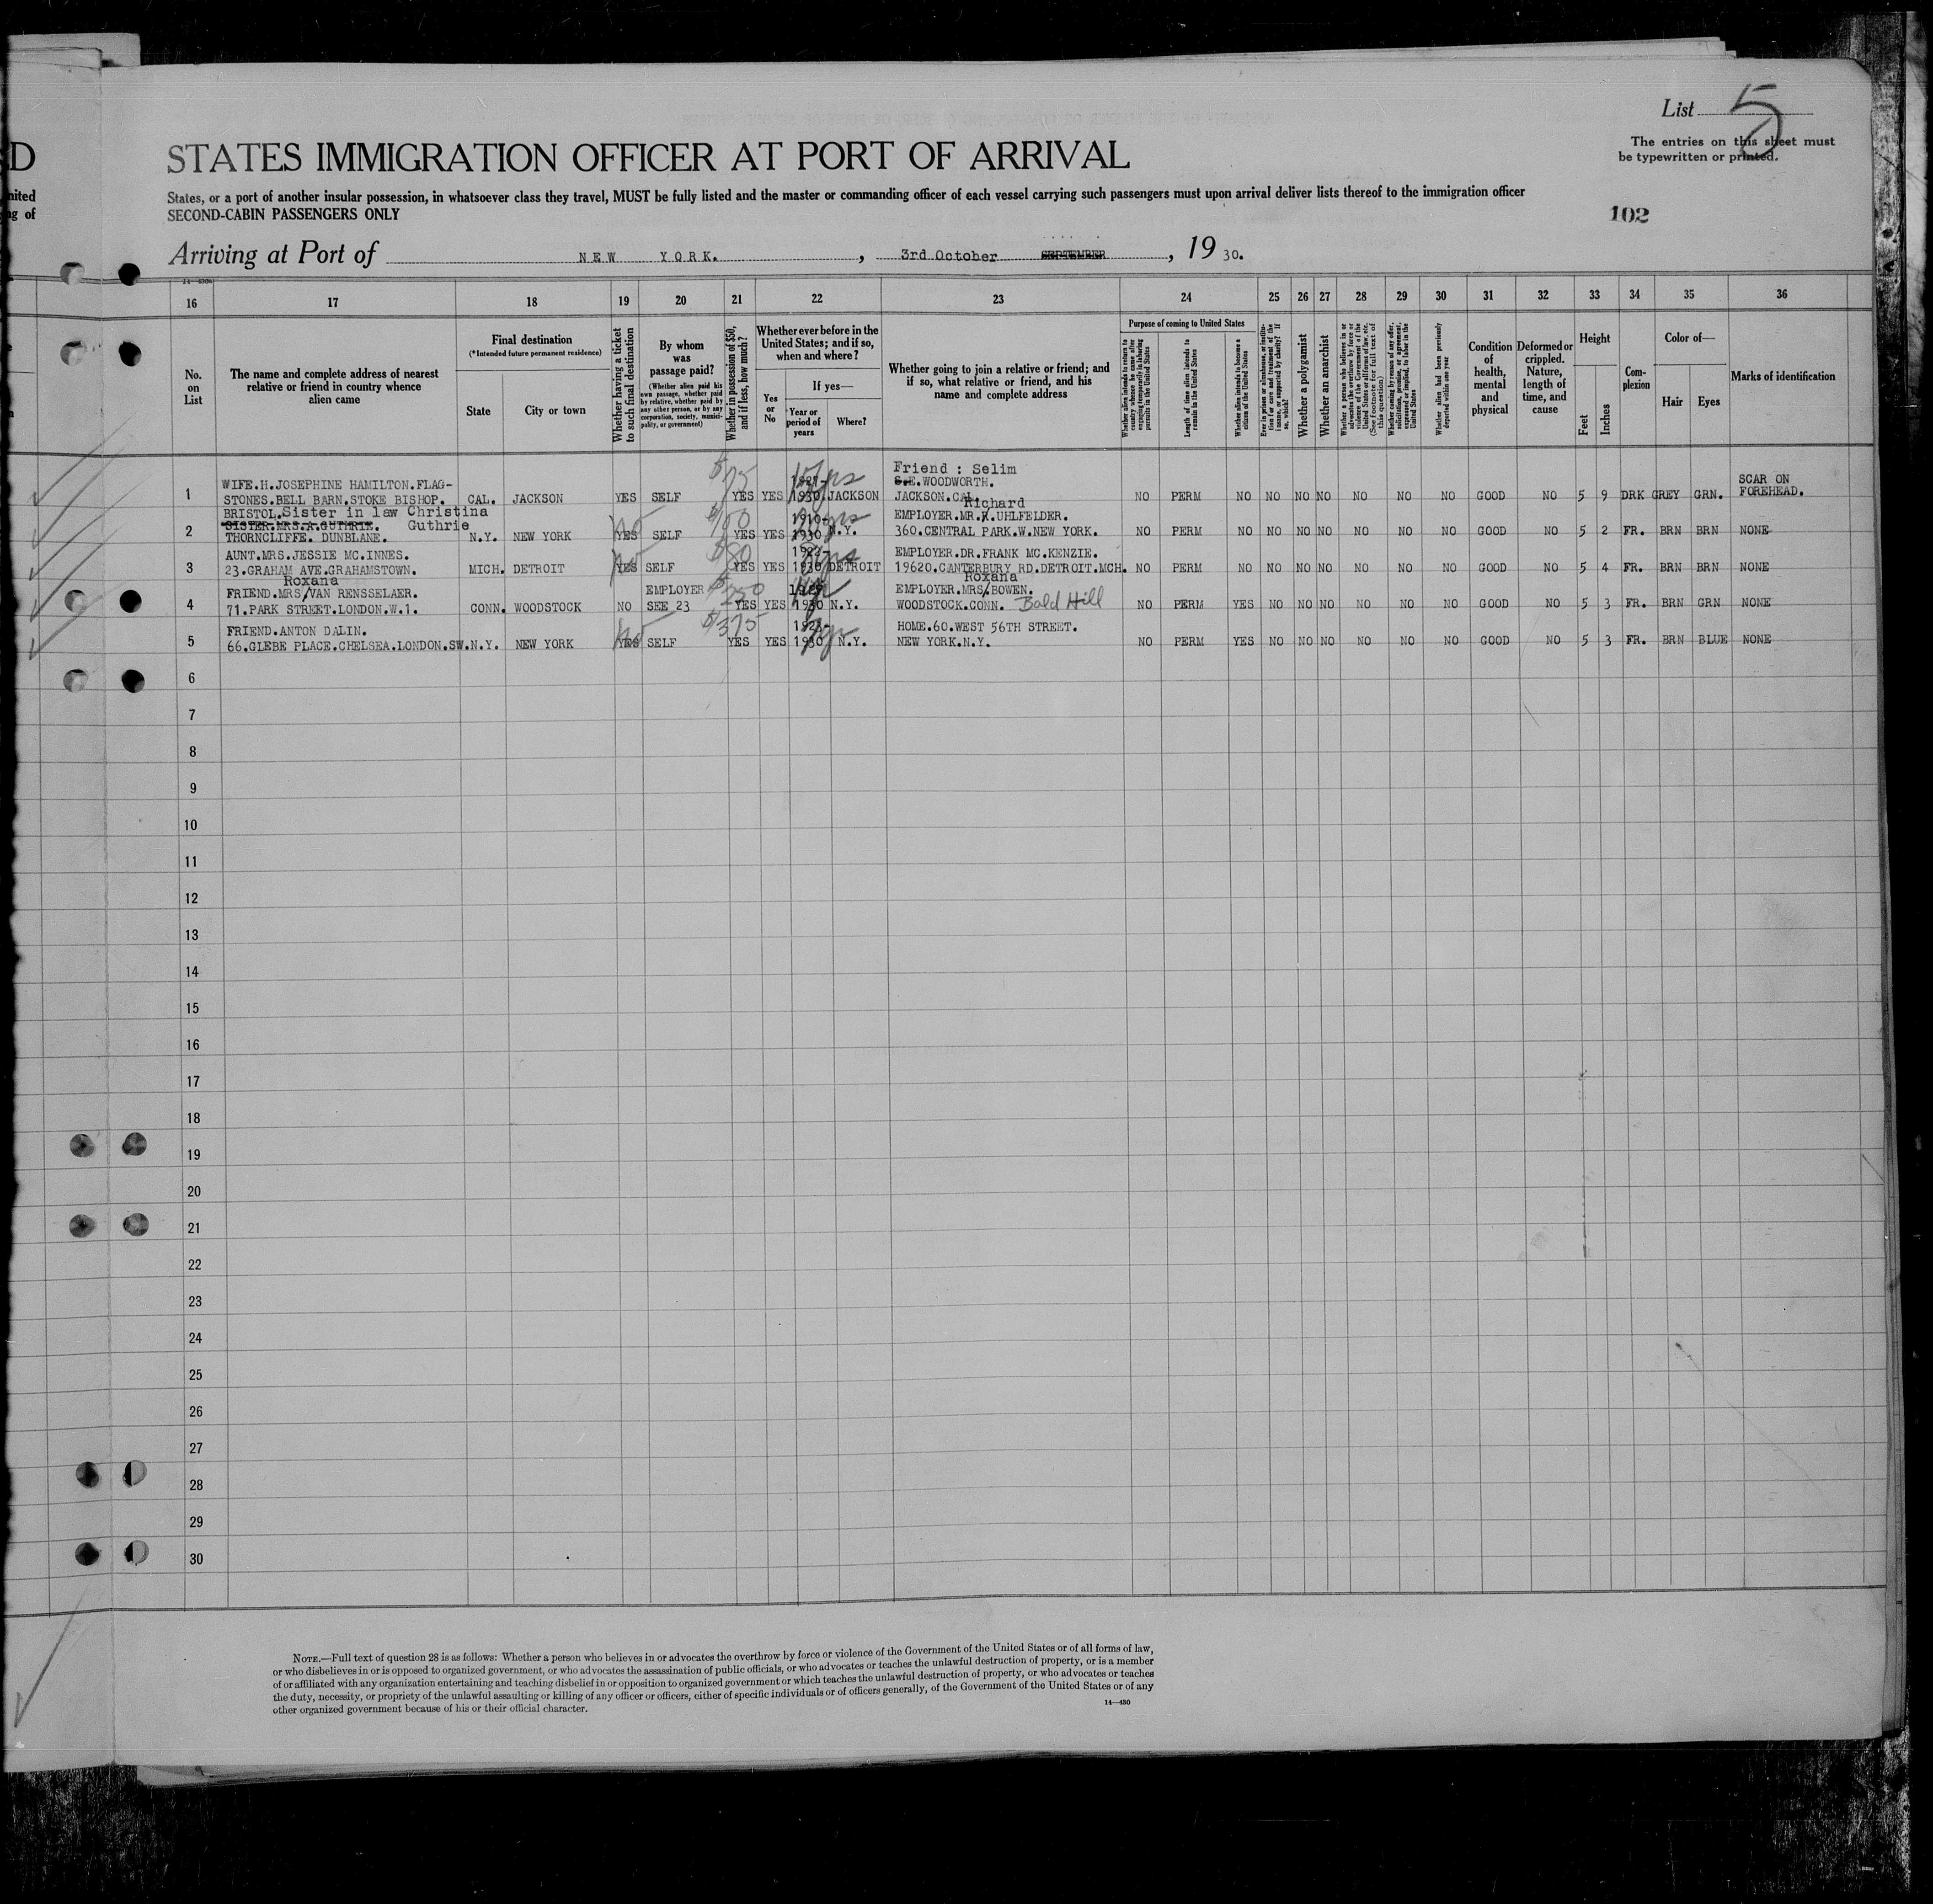 List 5
The entries on this sheet must
be typewritten or printed.
D
STATES IMMIGRATION OFFICER AT PORT OF ARRIVAL
nited
States, or a port of another insular possession, in whatsoever class they travel, MUST be fully listed and the master or commanding officer of each vessel carrying such passengers must upon arrival deliver lists thereof to the immigration officer
ng of
SECOND-CABIN PASSENGERS ONLY
102
Arriving at Port of NEW YORK. , 3rd October SEPTEMBER , 19 30.
16 17 18 19 20 21 22 23 24 25 26 27 28 29 30 31 32 33 34 35 36
No. on List
The name and complete address of nearest
relative or friend in country whence
alien came
Final destination
(*Intended future permanent residence)
State
City or town
Whether having a ticket
to such final destination
By whom
was
passage paid?
(Whether alien paid his
own passage, whether paid
by relative, whether paid by
any other person, or by any
corporation, society, munici-
pality, or government)
Whether in possession of $50,
and if less, how much?
Whether ever before in the
United States; and if so,
when and where?
Yes or No
If yes—
Year or
period of
years
Where?
Whether going to join a relative or friend; and
if so, what relative or friend, and his
name and complete address
Purpose of coming to United States
Whether alien intends to return to
country whence he came after
engaging temporarily in laboring
pursuits in the United States
Length of time alien intends to
remain in the United States
Whether alien intends to become a
citizen of the United States
Ever in prison or almshouse, or institu-
tion for care and treatment of the
insane, or supported by charity? If
so, which?
Whether a polygamist
Whether an anarchist
Whether a person who believes in or
advocates the overthrow by force or
violence of the Government of the
United States or all forms of law, etc.
(See footnote for full text of
this question)
Whether coming by reason of any offer,
solicitation, promise, or agreement,
expressed or implied, to labor in the
United States
Whether alien had been previously
deported within one year
Condition
of
health,
mental
and
physical
Deformed or
crippled.
Nature,
length of
time, and
cause
Height
Feet
Inches
Com-
plexion
Color of—
Hair
Eyes
Marks of identification
1 WIFE.H.JOSEPHINE HAMILTON.FLAG-
STONES.BELL BARN.STOKE BISHOP.
BRISTOL. CAL. JACKSON YES SELF $75 YES YES 1921- 1930 JACKSON Friend : Selim
S.E.WOODWORTH.
JACKSON.CAL. NO PERM NO NO NO NO NO NO NO GOOD NO 5 9 DRK GREY GRN. SCAR ON
FOREHEAD.
2 Sister in law Christina
SISTER.MRS.A.GUTHRIE. Guthrie
THORNCLIFFE. DUNBLANE. N.Y. NEW YORK YES no SELF YES YES 1910- 1930 N.Y. Richard
EMPLOYER.MR.R.UHLFELDER.
360.CENTRAL PARK.W.NEW YORK. NO PERM NO NO NO NO NO NO NO GOOD NO 5 2 FR. BRN BRN NONE
3 AUNT.MRS.JESSIE MC.INNES.
23.GRAHAM AVE.GRAHAMSTOWN. MICH. DETROIT YES no SELF $80 YES YES 1930 DETROIT EMPLOYER.DR.FRANK MC.KENZIE.
19620.CANTERBURY RD.DETROIT.MCH. NO PERM NO NO NO NO NO NO NO GOOD NO 5 4 FR. BRN BRN NONE
4 Roxana
FRIEND.MRS/VAN RENSSELAER.
71.PARK STREET.LONDON.W.1. CONN. WOODSTOCK NO EMPLOYER
SEE 23 YES YES 1930 N.Y. Roxana
EMPLOYER.MRS/BOWEN.
WOODSTOCK.CONN. Bald Hill NO PERM YES NO NO NO NO NO NO GOOD NO 5 3 FR. BRN GRN NONE
5 FRIEND.ANTON DALIN.
66.GLEBE PLACE.CHELSEA.LONDON.SW. N.Y. NEW YORK YES no SELF $375 YES YES 1930 N.Y. HOME.60.WEST 56TH STREET.
NEW YORK.N.Y. NO PERM YES NO NO NO NO NO NO GOOD NO 5 3 FR. BRN BLUE NONE
6
7
8
9
10
11
12
13
14
15
16
17
18
19
20
21
22
23
24
25
26
27
28
29
30
NOTE.—Full text of question 28 is as follows: Whether a person who believes in or advocates the overthrow by force or violence of the Government of the United States or of all forms of law,
or who disbelieves in or is opposed to organized government, or who advocates the assassination of public officials, or who advocates or teaches the unlawful destruction of property, or is a member
of or affiliated with any organization entertaining and teaching disbelief in or opposition to organized government or which teaches the unlawful destruction of property, or who advocates or teaches
the duty, necessity, or propriety of the unlawful assaulting or killing of any officer or officers, either of specific individuals or of officers generally, of the Government of the United States or of any
other organized government because of his or their official character.
14—430